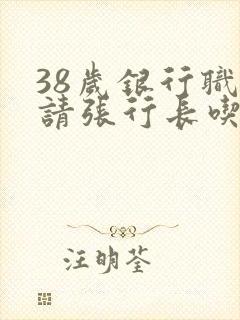 38歲銀行職
請張行長喫
汪明荃